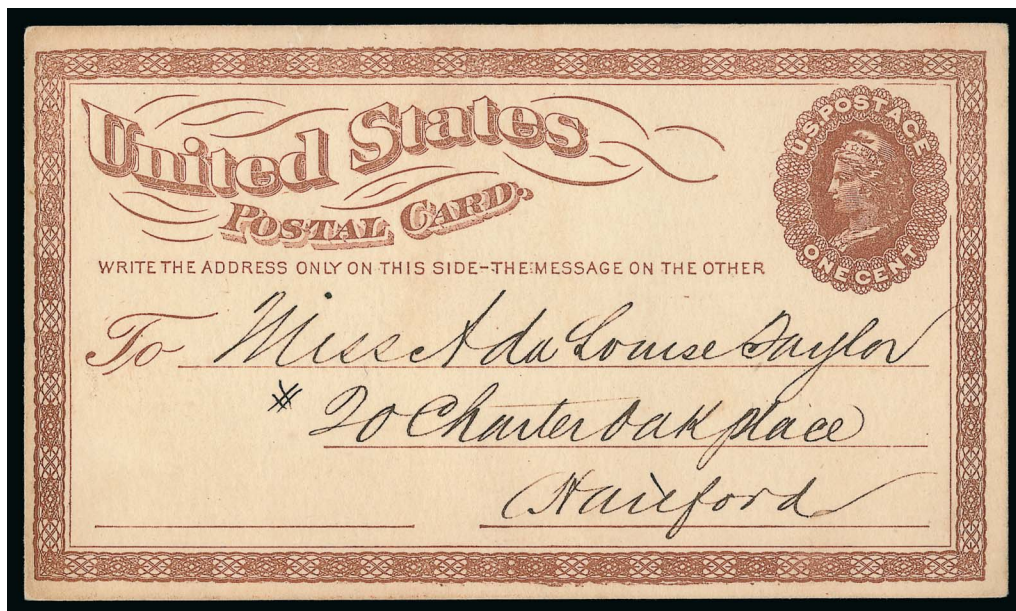 United States
POSTAL CARD.
U.S. POSTAGE
ONE CENT
WRITE THE ADDRESS ONLY ON THIS SIDE-THE MESSAGE ON THE OTHER
To Miss Ada Louise Taylor
# 20 Charter Oak place
Hartford